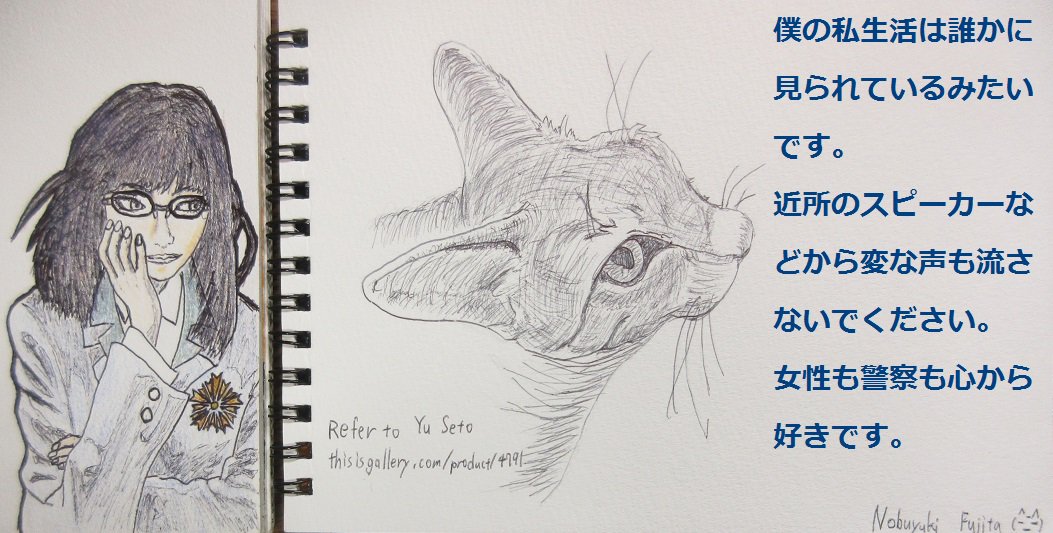 僕の私生活は誰かに
見られているみたい
です。
近所のスピーカーな
どから変な声も流さ
ないでください。
女性も警察も心から
好きです。
Refer to Yu Seto
thisisgallery.com/product/4791
Nobuyuki Fujita (^-^)